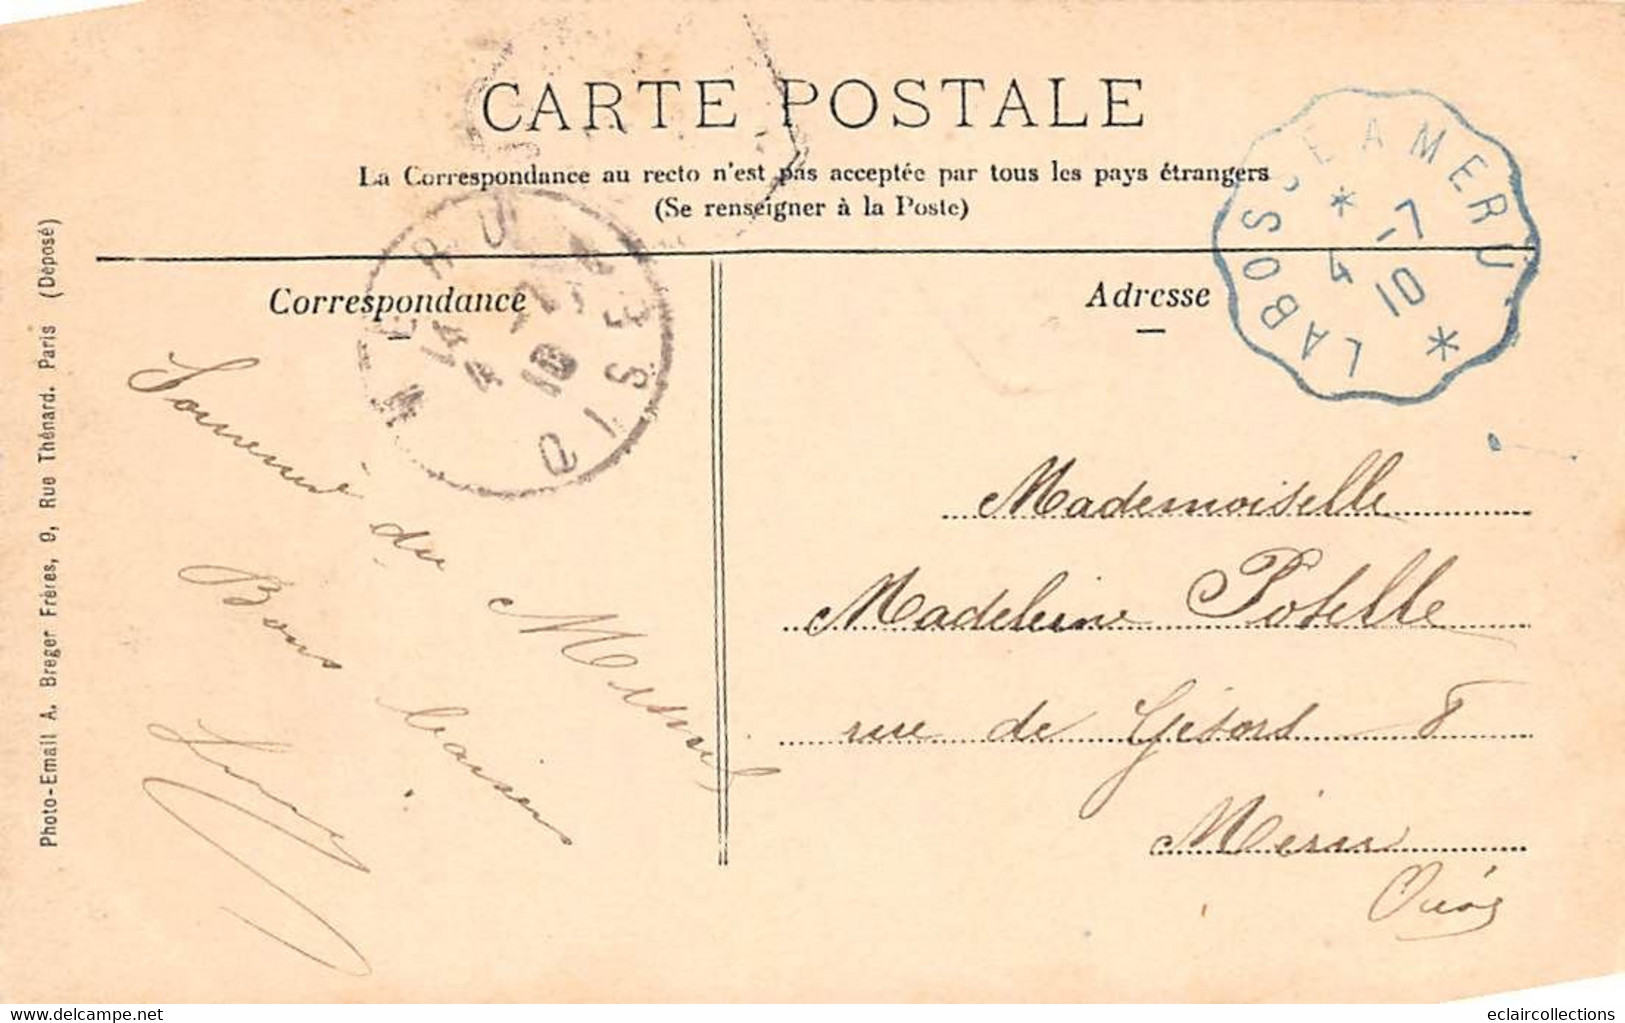 CARTE POSTALE
La Correspondance au recto n'est pas acceptée par tous les pays étrangers
(Se renseigner à la Poste)
LABOSSE A MERU
4 -7
10
MERU
14
4 -7
10
OISE
Correspondance
Adresse
Souvenir
du Mesnil
Bons baisers
Lucy
Mademoiselle
Madeleine Potelle
rue de Gisors 8
Méru
Oise
Photo-Email A. Breger Frères, 9, Rue Thénard. Paris (Déposé)
delcampe.net
eclaircollections